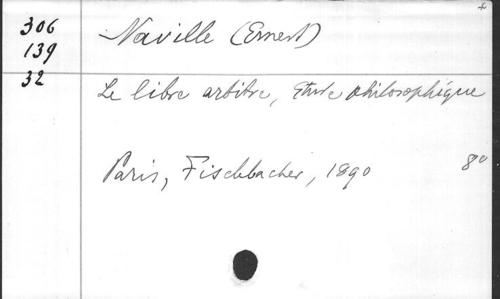 306
139
32
Naville (Ernest)
Le libre arbitre, Etude philosophique
Paris, Fischbacher, 1890 8º